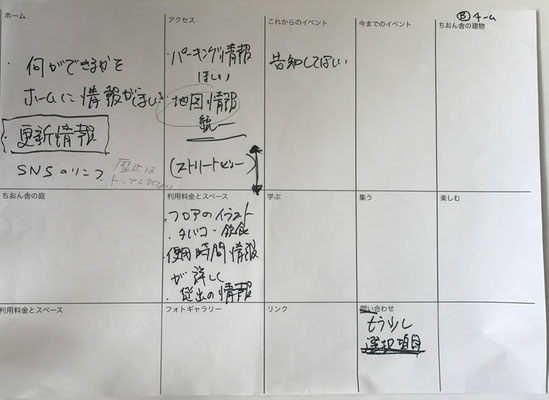 ホーム
・何ができるかを
ホームに情報がほしい
更新情報
SNSのリンク
アクセス
パーキング情報
ほしい
地図情報
統一
(ストリートビュー)
これからのイベント
告知してほしい
今までのイベント
Ⓑチーム
ちおん舎の建物
ちおん舎の庭
利用料金とスペース
・フロアのイラスト
・タバコ・飲食
・使用時間情報
が詳しく
・貸出の情報
学ぶ
集う
楽しむ
利用料金とスペース
フォトギャラリー
リンク
問い合わせ
もう少し
選択項目